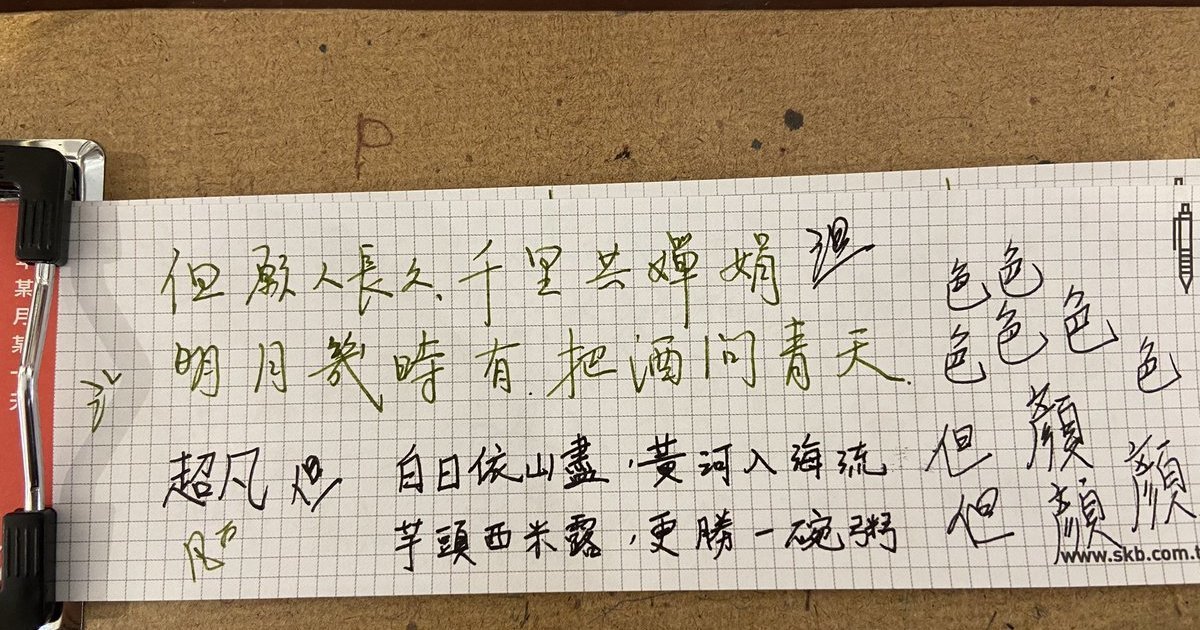 P
但願人長久,千里共嬋娟
明月幾時有.把酒問青天.
超凡
白日依山盡,黃河入海流
芋頭西米露,更勝一碗粥
色色
色色色
色
但 顏
但 顏 顏
www.skb.com.t
某月某